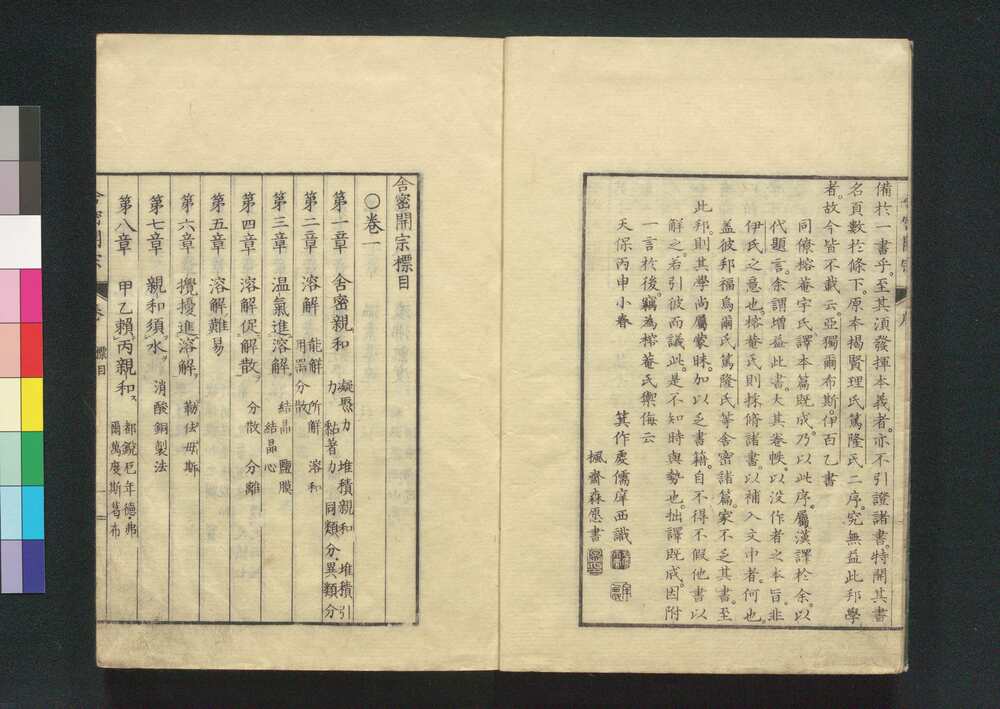 備於一書乎。至其須發揮本義者。亦不引證諸書。特開其書
名頁數於條下。原本揭賢理氏篤隆氏二序。究無益此邦學
者。故今皆不載云。亞獨爾布斯。伊百乙書
同僚榕菴宇氏譯本篇既成。乃以此序。屬漢譯於余。以
代題言。余謂增益此書。大其卷帙。以沒作者之本旨。非
伊氏之意也。榕菴氏則採脩諸書。以補入文中者。何也。
蓋彼邦福烏爾氏篤隆氏等舍密諸篇。家不乏其書。至
此邦。則其學尚屬蒙昧。加以乏書籍。自不得不假他書以
解之。若引彼而議此。是不知時與勢也。拙譯既成。因附
一言於後。竊為榕菴氏禦侮云
天保丙申小春 箕作虔儒庠西識
楓齋森愿書
舍密開宗標目
○卷一
第一章 舍密親和 凝聚力 堆積親和 堆積引力 黏著力 同類分・異類分
第二章 溶解 能解 所解 溶和 用器分散
第三章 溫氣進溶解 結晶 鹽膜 結晶心
第四章 溶解促解散 分散 分離
第五章 溶解難易
第六章 攪擾進溶解 勒仕毋斯
第七章 親和須水 消酸銅製法
第八章 甲乙賴丙親和ス 都銳厄年德・弗爾萬度斯葛布
舍密開宗 標目 一